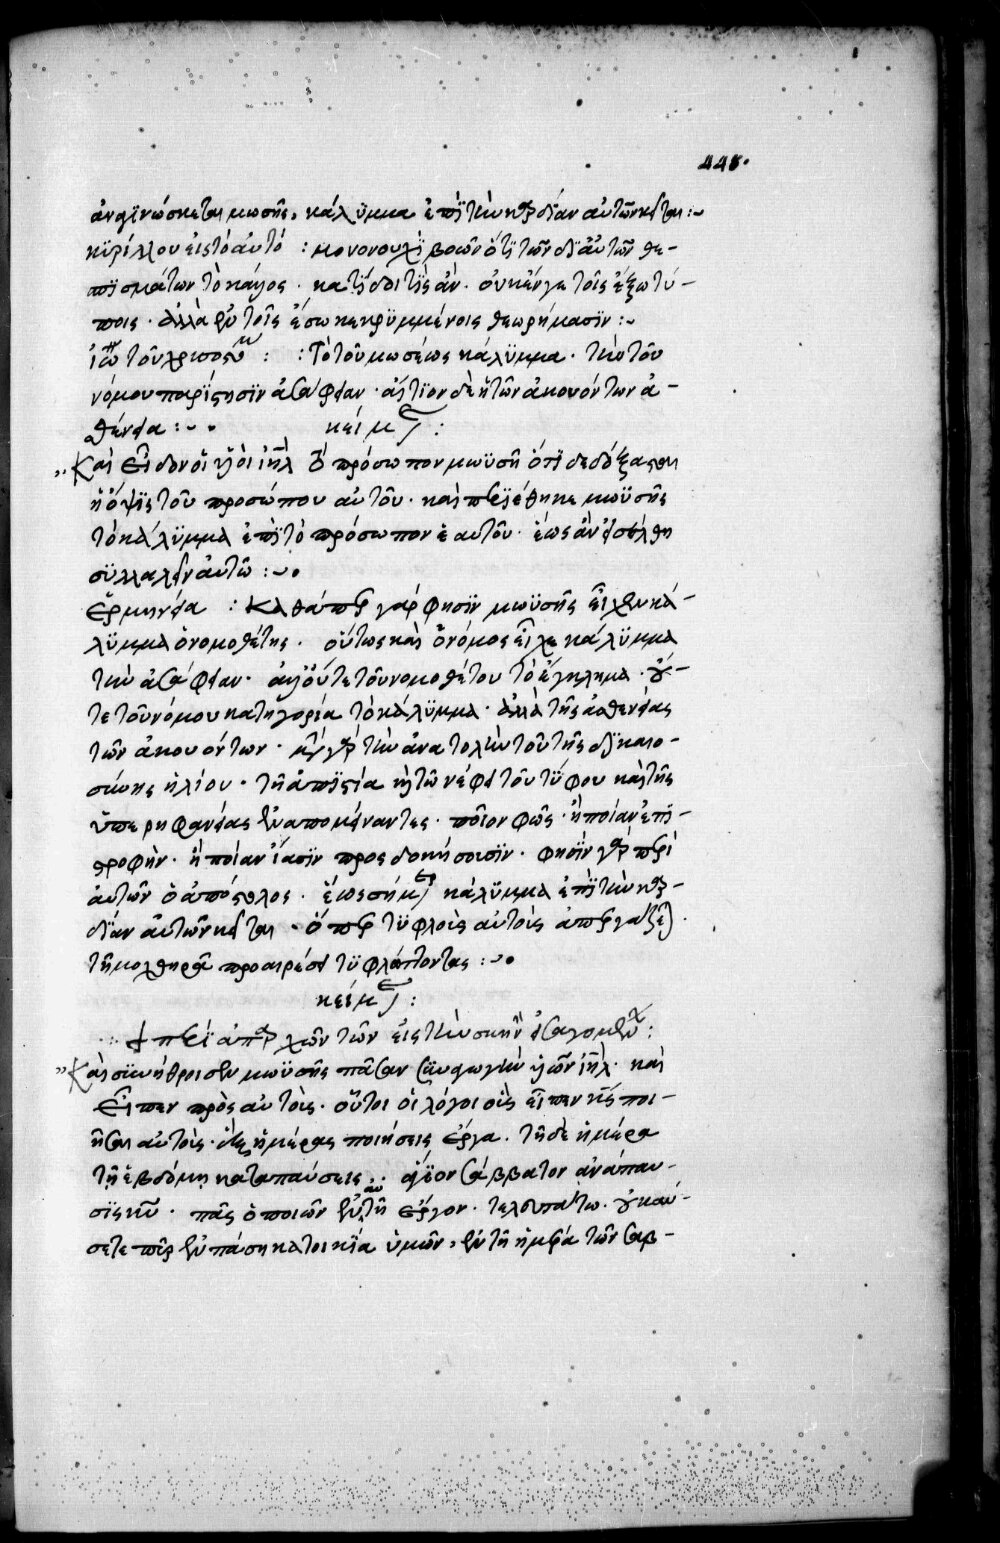 445.
ἀναγϊνώσκεται μωσῆς, κάλϋμμα ἐπῒ τὴν καρδίαν αὐτῶν κεῖται :~
κϋρίλλου εἰς τὸ αὐτό : μονονουχῒ βοῶν ὅτϊ τῶν δϊ αὐτῶν θε-
σπϊσμάτων τὸ κάλλος. κατΐδοι τῒς ἂν. οὐκ ἔν γε τοῖς ἔξω τύ-
ποις. ἀλλὰ ἐν τοῖς ἔσω κεκρϋμμένοις θεωρήμασϊν :~
ἰω τοῦ χρυσοστο : : Τὸ τοῦ μωσέως κάλϋμμα. τὴν τοῦ
νόμου παρΐστησϊν ἀσάφειαν. αἴτϊον δὲ ἡ τῶν ἀκουόντων ἀ-
σθένεια :~. κείμενον :
Καὶ εἶδον οἱ υἱοὶ ιηλ τὸ πρόσωπον μωϋσῆ ὅτϊ δεδόξασται
ἡ ὄψϊς τοῦ προσώπου αὐτοῦ. καὶ περϊέθηκε μωϋσῆς
τὸ κάλϋμμα ἐπῒ τὸ πρόσωπον ἑαυτοῦ. ἕως ἂν εἰσέλθη
σϋλλαλεῖν αὐτῶ :~.
Ἑρμηνεία : Καθάπερ γάρ φησϊν μωϋσῆς εἶχεν κά-
λϋμμα ὁ νομοθέτης. οὕτως καὶ ὁ νόμος εἶχε κάλϋμμα
τὴν ἀσάφειαν. ἀλλ' οὔτε τοῦ νομοθέτου τὸ ἔγκλημα. οὔ-
τε τοῦ νόμου κατηγορία τὸ κάλϋμμα. ἀλλὰ τῆς ἀσθενείας
τῶν ἀκουόντων. μετὰ γὰρ τὴν ἀνατολὴν τοῦ τῆς δϊκαιο-
σύνης ἡλίου. τῆ ἀπϊστία καὶ τῶ νέφει τοῦ τύφου καὶ τῆς
ὑπερηφανείας ἐναπομείναντες. ποῖον φῶς. ἢ ποίαν ἐπϊ-
στροφὴν. ἢ ποίαν ἴασϊν προσδοκήσουσϊν. φησῒν γὰρ περὶ
αὐτῶν ὁ ἀπόστολος. ἕως σήμερον κάλυμμα ἐπῒ τὴν καρ-
δίαν αὐτῶν κεῖται. ὅπερ τϋφλοὺς αὐτοὺς ἀπεργάζεται
τῆ μοχθηρᾶ προαιρέσει τϋφλώττοντας :~.
κείμενον :
περὶ ἀπαρχῶν τῶν εἰς τὴν σκηνὴν εἰσαγομένων :
Καὶ σϋνήθροισεν μωϋσῆς πᾶσαν σϋναγωγὴν υἱῶν ιηλ. καὶ
εἶπεν πρὸς αὐτούς. οὗτοι οἱ λόγοι οὓς εἶπεν κς ποι-
ῆσαι αὐτούς. ἓξ ἡμέρας ποιήσεις ἔργα. τῆ δὲ ἡμέρα
τῆ ἑβδόμη καταπαύσεις. ἅγϊον σάββατον ἀνάπαυ-
σϊς κυ. πᾶς ὁ ποιῶν ἐν αὐτῆ ἔργον. τελευτάτω. οὐ καύ-
σετε πῦρ ἐν πάση κατοικΐα ὑμῶν, ἐν τῆ ἡμέρα τῶν σαβ-